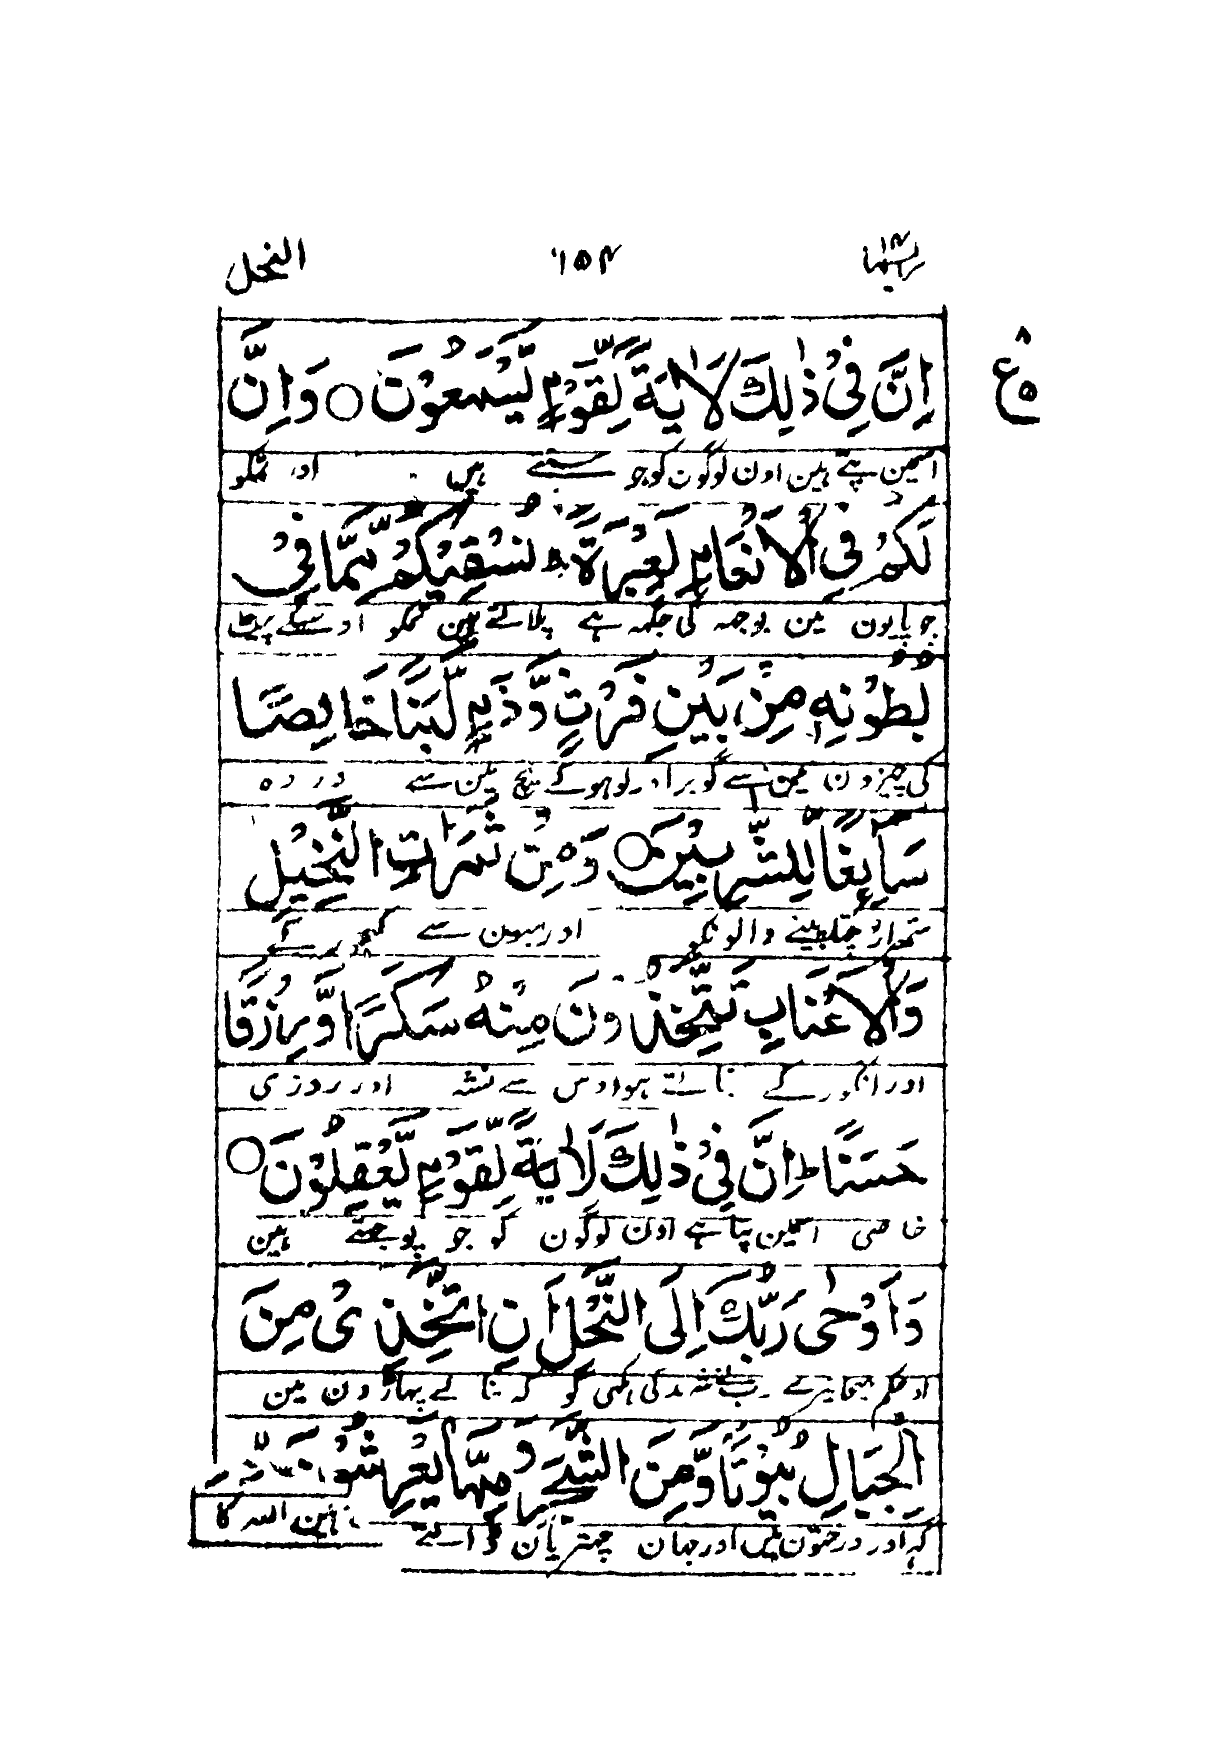 ربما ۱۴ ۱۵۴ النحل
اِنَّ فِیْ ذٰلِکَ لَاٰیَةً لِّقَوْمٍ یَّسْمَعُوْنَ ○ وَاِنَّ
۸ ع ۵
اسمین پتے ہین اون لوگون کو جو سنتے ہیں اور تمکو
لَکُمْ فِی الْاَنْعَامِ لَعِبْرَةً ؕ نُسْقِیْکُمْ مِّمَّا فِیْ
چوپایون مین بوجھہ کی جگہہ ہے پلاتے ہین تمکو اوسکے پیٹ
بُطُوْنِهٖ مِنْ بَیْنِ فَرْثٍ وَّدَمٍ لَّبَنًا خَالِصًا
کی چیزون مین سے گوبر اور لوہو کے بیچ مین سے دودہ
سَآىِٕغًا لِّلشّٰرِبِیْنَ ○ وَمِنْ ثَمَرٰتِ النَّخِیْلِ
ستھرا پینے والونکو اور میوون سے کھجور کے
وَالْاَعْنَابِ تَتَّخِذُوْنَ مِنْهُ سَکَرًا وَّرِزْقًا
اور انگور کے بناتے ہو اوس سے نشہ اور روزی
حَسَنًا ؕ اِنَّ فِیْ ذٰلِکَ لَاٰیَةً لِّقَوْمٍ یَّعْقِلُوْنَ ○
خاصی اسمین پتا ہے اون لوگون کو جو بوجھتے ہین
وَاَوْحٰی رَبُّکَ اِلَی النَّحْلِ اَنِ اتَّخِذِیْ مِنَ
اور حکم بھیجا تیرے رب نے شہد کی مکھی کو کہ بنا لے پہاڑون مین
الْجِبَالِ بُیُوْتًا وَّمِنَ الشَّجَرِ وَمِمَّا یَعْرِشُوْنَ
گہر اور درختون میں اور جہان چھتریان ڈالتے
ہین اللہ کا